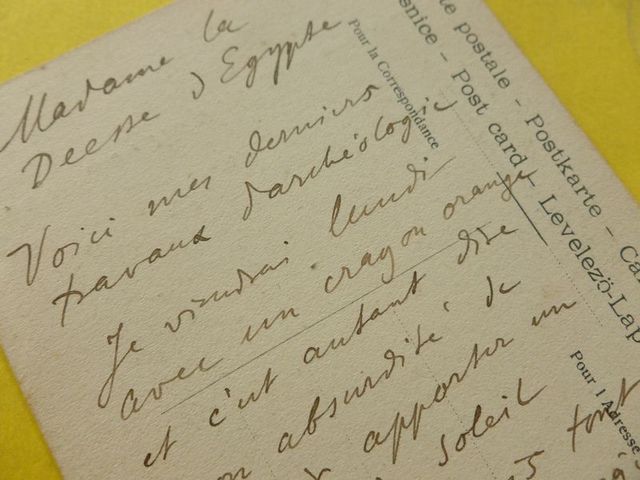 Madame la
Deesse d'Egypte
Voici mes derniers
travaux d'archéologie
Je viendrai lundi
avec un crayon orange
et c'est autant dire
absurdité de
apporter un
soleil
tont
Pour la Correspondance
te postale - Postkarte - Ca
snice - Post card - Levelezö-Lap
Pour l Adresse